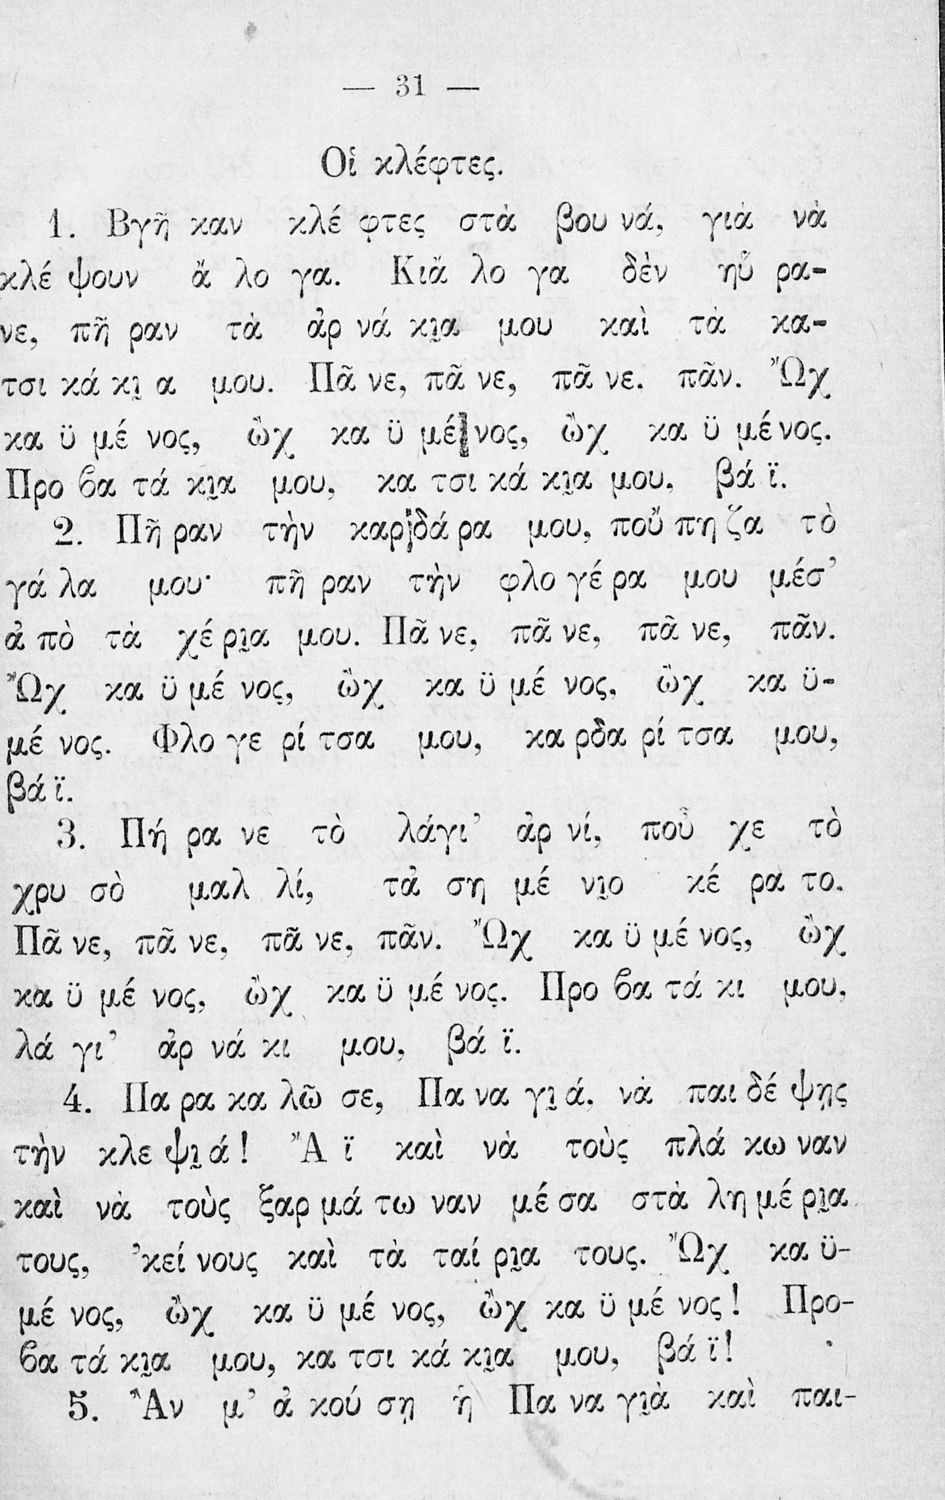 — 31 —
Οἱ κλέφτες.
1. Βγῆ καν κλέ φτες στὰ βου νά, γιὰ νὰ
κλέ ψουν ἄ λο γα. Κιἄ λο γα δὲν ηὗ ρα-
νε, πῆ ραν τὰ ἀρ νά κι̯α μου καὶ τὰ κα-
τσι κά κι̯ α μου. Πᾶ νε, πᾶ νε, πᾶ νε. πᾶν. Ὤχ
κα ϋ μέ νος, ὢχ κα ϋ μέ νος, ὢχ κα ϋ μέ νος.
Προ βα τά κι̯α μου, κα τσι κά κι̯α μου, βά ϊ.
2. Πῆ ραν τὴν καρ δά ρα μου, ποὔ πη ζα τὸ
γά λα μου· πῆ ραν τὴν φλο γέ ρα μου μέσ’
ἀ πὸ τὰ χέ ρι̯α μου. Πᾶ νε, πᾶ νε, πᾶ νε, πᾶν.
Ὤχ κα ϋ μέ νος, ὢχ κα ϋ μέ νος, ὢχ κα ϋ-
μέ νος. Φλο γε ρί τσα μου, κα ρδα ρί τσα μου,
βά ϊ.
3. Πή ρα νε τὸ λάγι’ ἀρ νί, ποὖ χε τὸ
χρυ σὸ μαλ λί, τἀ ση μέ νι̯ο κέ ρα το.
Πᾶ νε, πᾶ νε, πᾶ νε, πᾶν. Ὤχ κα ϋ μέ νος, ὢχ
κα ϋ μέ νος, ὢχ κα ϋ μέ νος. Προ βα τά κι μου,
λά γι’ ἀρ νά κι μου, βά ϊ.
4. Πα ρα κα λῶ σε, Πα να γι̯ ά, νὰ παι δέ ψῃς
τὴν κλε ψι̯ ά! Ἄ ϊ καὶ νὰ τοὺς πλά κω ναν
καὶ νὰ τοὺς ξαρ μά τω ναν μέ σα στὰ λη μέ ρι̯α
τους, ’κεί νους καὶ τὰ ταί ρι̯α τους. Ὤχ κα ϋ-
μέ νος, ὢχ κα ϋ μέ νος, ὢχ κα ϋ μέ νος! Προ-
βα τά κι̯α μου, κα τσι κά κι̯α μου, βά ϊ!
5. Ἂν μ’ ἀ κού σῃ ἡ Πα να γι̯ὰ καὶ παι-